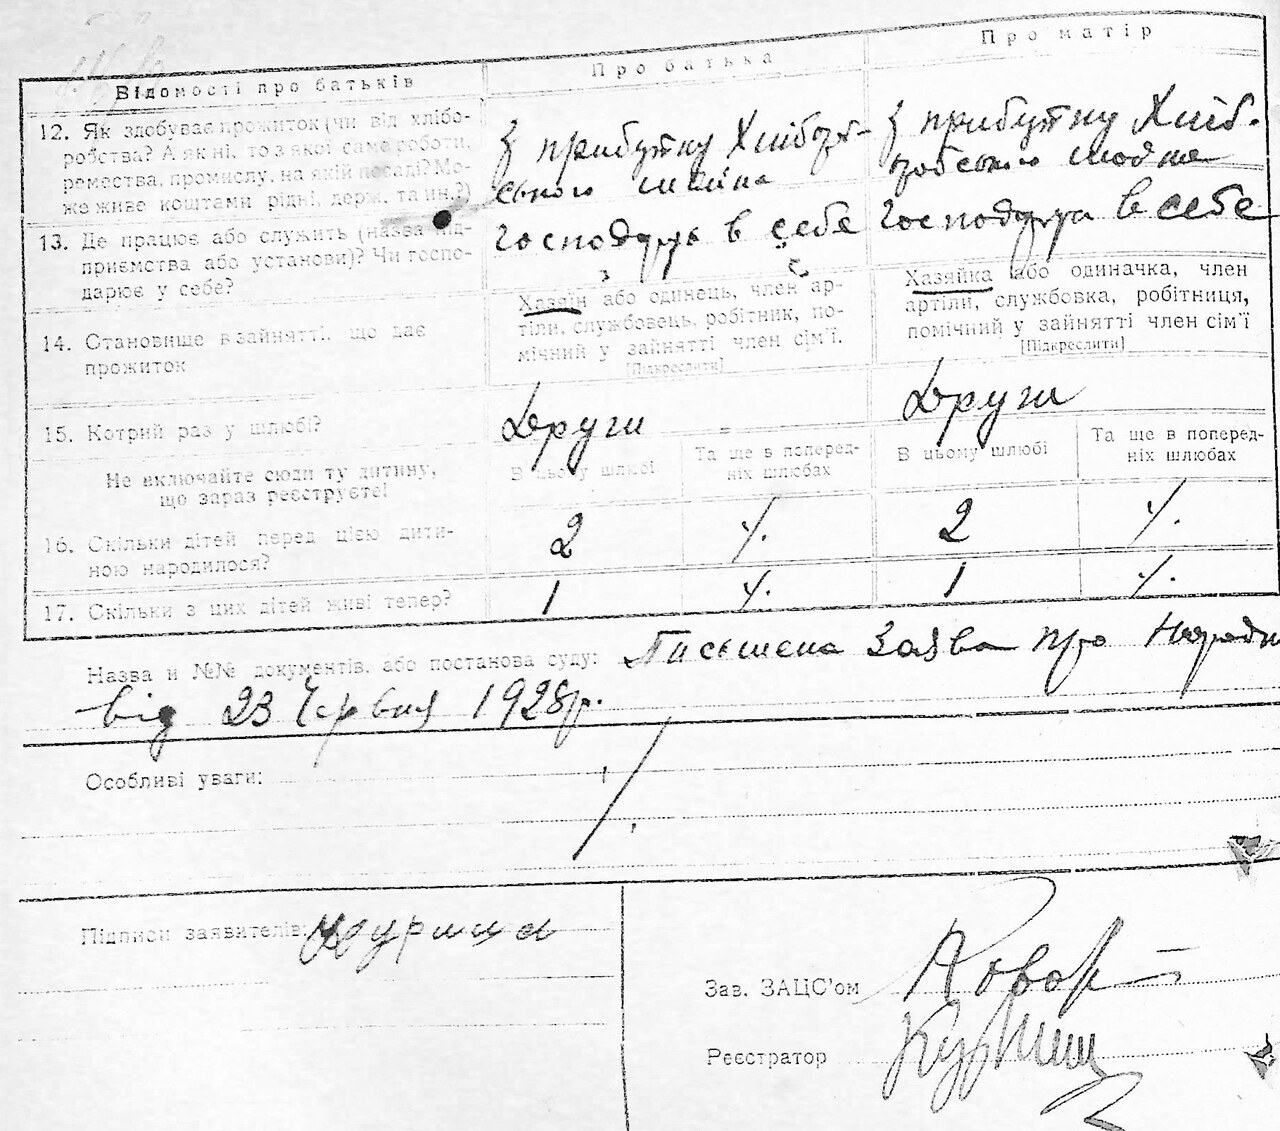 Відомості про батьків
Про батька
Про матір
12. Як здобуває прожиток (чи від хлібо-
робства? А як ні, то з якої саме роботи,
ремества, промислу, на якій посаді? Мо-
же живе коштами рідні, держ. та ин.?)
З прибутку Хлібороб-
ського
З прибутку Хліб.
робського
13. Де працює або служить (назва під-
приємства або установи)? Чи госпо-
дарює у себе?
господарує в себе
господарує в себе
14. Становище в зайнятті, що дає
прожиток
Хазяїн або одинець, член ар-
тіли, службовець, робітник, по-
мічний у зайнятті член сім'ї.
[Підкреслити]
Хазяйка або одиначка, член
артіли, службовка, робітниця,
помічний у зайнятті член сім'ї
[Підкреслити]
15. Котрий раз у шлюбі?
Други
Други
Не включайте сюди ту дитину,
що зараз реєструєте!
В цьому шлюбі
Та ще в поперед-
ніх шлюбах
В цьому шлюбі
Та ще в поперед-
ніх шлюбах
16. Скільки дітей перед цією дити-
ною народилося?
2 ⁒ 2 ⁒
17. Скільки з цих дітей живі тепер?
1 ⁒ 1 ⁒
Назва и №№ документів, або постанова суду: Писмена Заява про Народж
від 23 Червня 1928р.
Особливі уваги:
Підписи заявителів:
Зав. ЗАЦС'ом
Реєстратор